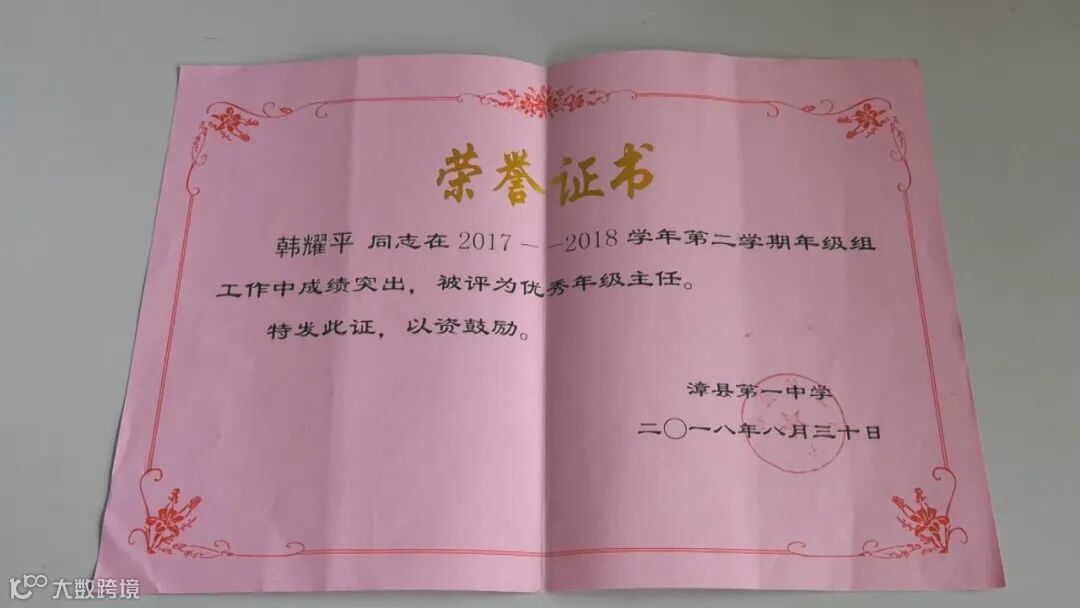 荣誉证书
韩耀平 同志在 2017--2018 学年第二学期年级组
工作中成绩突出，被评为优秀年级主任。
特发此证，以资鼓励。
漳县第一中学
二〇一八年八月三十日
大数跨境